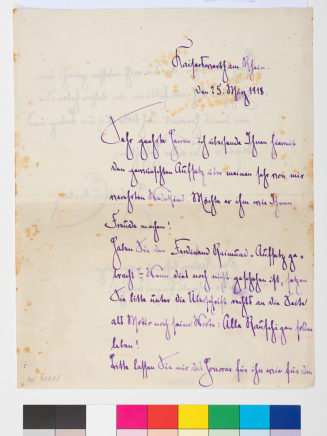 Kaiserswerth am Rhein
den 25. März 1918
Sehr geehrte Herren, ich übersende Ihnen hiermit
den gewünschten Aufsatz über meinen sehr von mir
verehrten Möchte er ihm wie Ihnen
Freude machen!
Haben Sie den Ferdinand Raimund-Aufsatz ge-
bracht? Wenn dies noch nicht geschehen ist, setzen
Sie bitte unter die Überschrift rechts an die Seite
als Motto noch seine Worte: Alle Rauschigen sollen
leben!
Bitte lassen Sie mir das Honorar für ihn wie für den